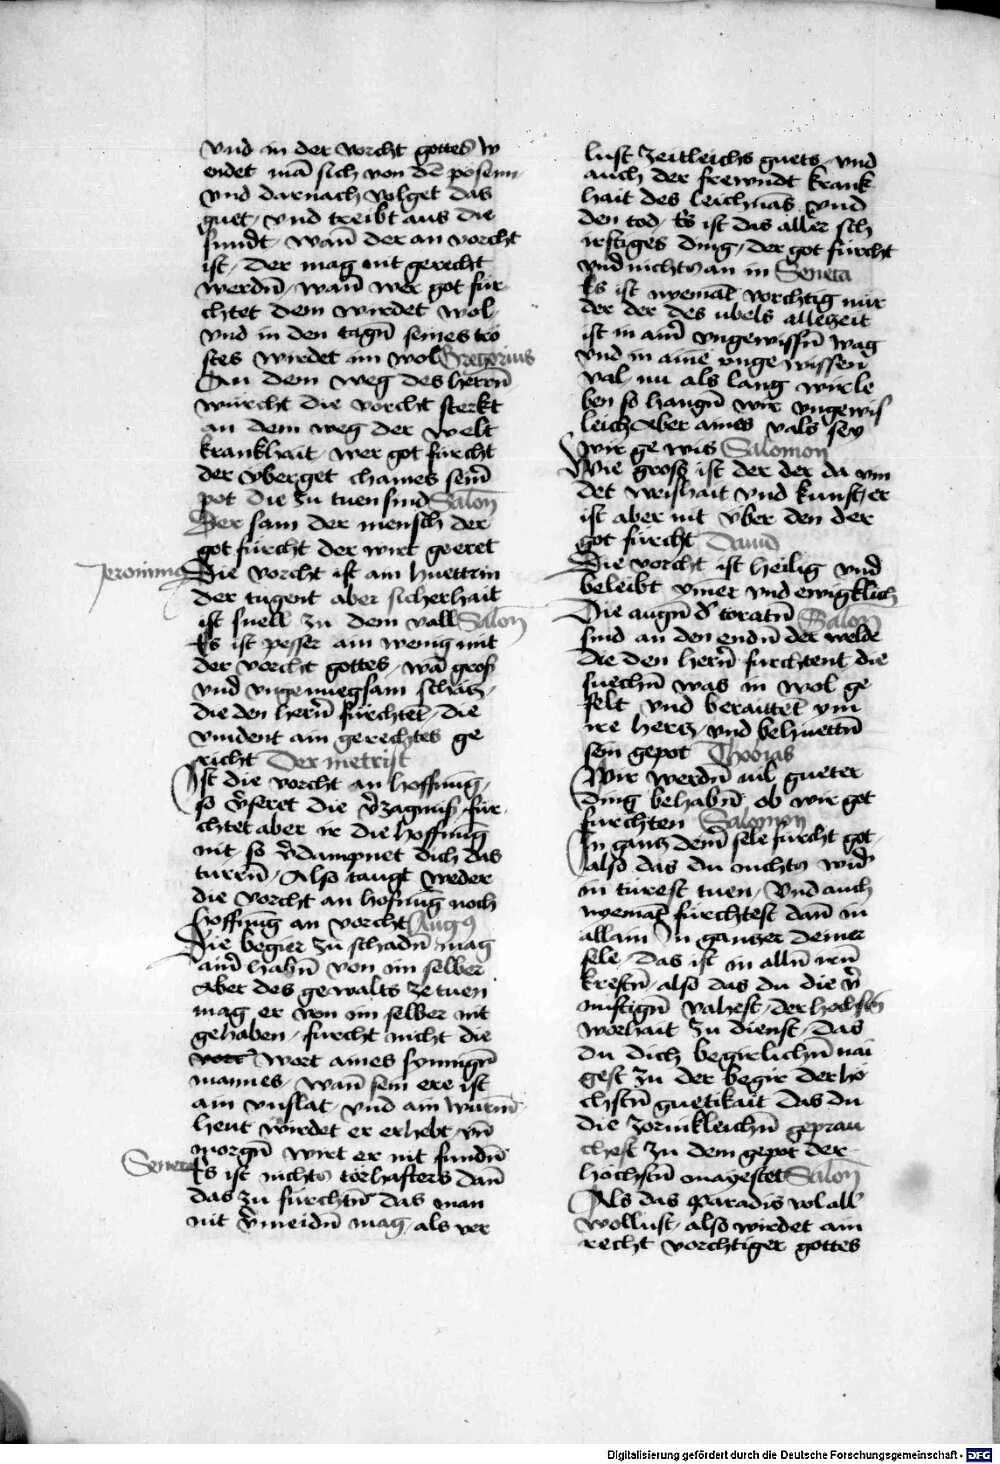 vnd in der vorcht gottes w
endet mā sich von dē posenn
vnd darnach volget das
guet / vnd treibt aus die
sundt / wañ der an vorcht
ist / der mag nit gerecht
werdñ / wañ wer got für
chtet dem wirdet wol /
vnd in den tagñ seines tro
stes wirdet im wol Gregorius
An dem weg des herrñ
würcht die vorcht sterkt
an dem weg der welt
krankhait / wer got fürcht
der vberget chaines seiñ
pot die zu tuen sind Salon̄
Der sam der mensch der
got fürcht der wirt geeret
Jeronimus
Die vorcht ist ain huettrin
der tugent aber sicherhait
ist snell zu dem vall Salon̄
Es ist pesser ain wenig mit
der vorcht gottes / wā groß
vnd vngenuegsam schätz /
die den herñ fürchtet̄ / die
vindent ain gerechtes ge
richt Der metrist
Ist die vorcht an hoffnūg /
so v̄seret die v̄zagnuß / für
chtet aber ir die hoffnūg
nit / so v̄dampnet dich das
turen̄ / Also taugt weder
die vorcht an hofnūg noch
hoffnūg an vorcht Aug9
Die begier zu schadñ mag
aiñ habñ von im selber
Aber des gewalts ze tuen
mag er von im selber nit
gehaben / fürcht nicht die
wort aines sonnigñ
mannes / wañ sein ere ist
ain vnflat / vnd ain wurm̄
heut wirdet er erhebt / vn̄
morgñ wirt er nit fundñ
Seneca
Es ist nichts torhafters dañ
das zu fürchtñ das man
nit v̄meidñ mag / als ver
lust zeitleichs guets / vnd
auch der frewndt krank
hait des leichnās vnd
den tod / Es ist das aller sch
irftiges ding / der got fürcht
vnd nichts an in Seneca
Es ist nyemāt vorchtig nür
der der des ubels allezeit
ist in aiñ vngewissñ wag
vnd in aine vngewissen
val / nu als lang wir le
ben so hangñ wir vngewis
leich Aber aines vals sey
wir gewis Salomon
Wie groß ist der der da vin
det weishait vnd kunst / er
ist aber nit über den der
got fürcht Dauid
Die vorcht ist heilig vnd
beleibt ym̄er vnd ewigklich
Die augñ d' toratñ Salon̄
sind an den endñ der welde
Die den herñ furchtent die
suechñ was in wol ge
felt vnd beraittet̄ ym
ire hertz / vnd behuettñ
sein gepot Thobias
Wir werdñ vil gueter
ding behabñ ob wir got
fürchten Salomon
In gantz deiñ sele fürcht got /
also das du nichts wid'
in türest tuen / Vnd auch
nyemāt fürchtest dañ in
allain / In gantzer deiner
sele / Das ist in allñ iren̄
kreftñ / also das du die v̄
nuftigñ vahest / der hochstñ
worhait zu dienst / Das
du dich begirlichñ nai
gest zu der begir der hö
chstñ guetikait Das du
die zornikleichñ geprau
chest zu dem gepot der
höchstñ mayestet Salon̄
Als das paradis vol all
wollust / also wirdet ain
recht vorchtiger gottes
Digitalisierung gefördert durch die Deutsche Forschungsgemeinschaft - DFG